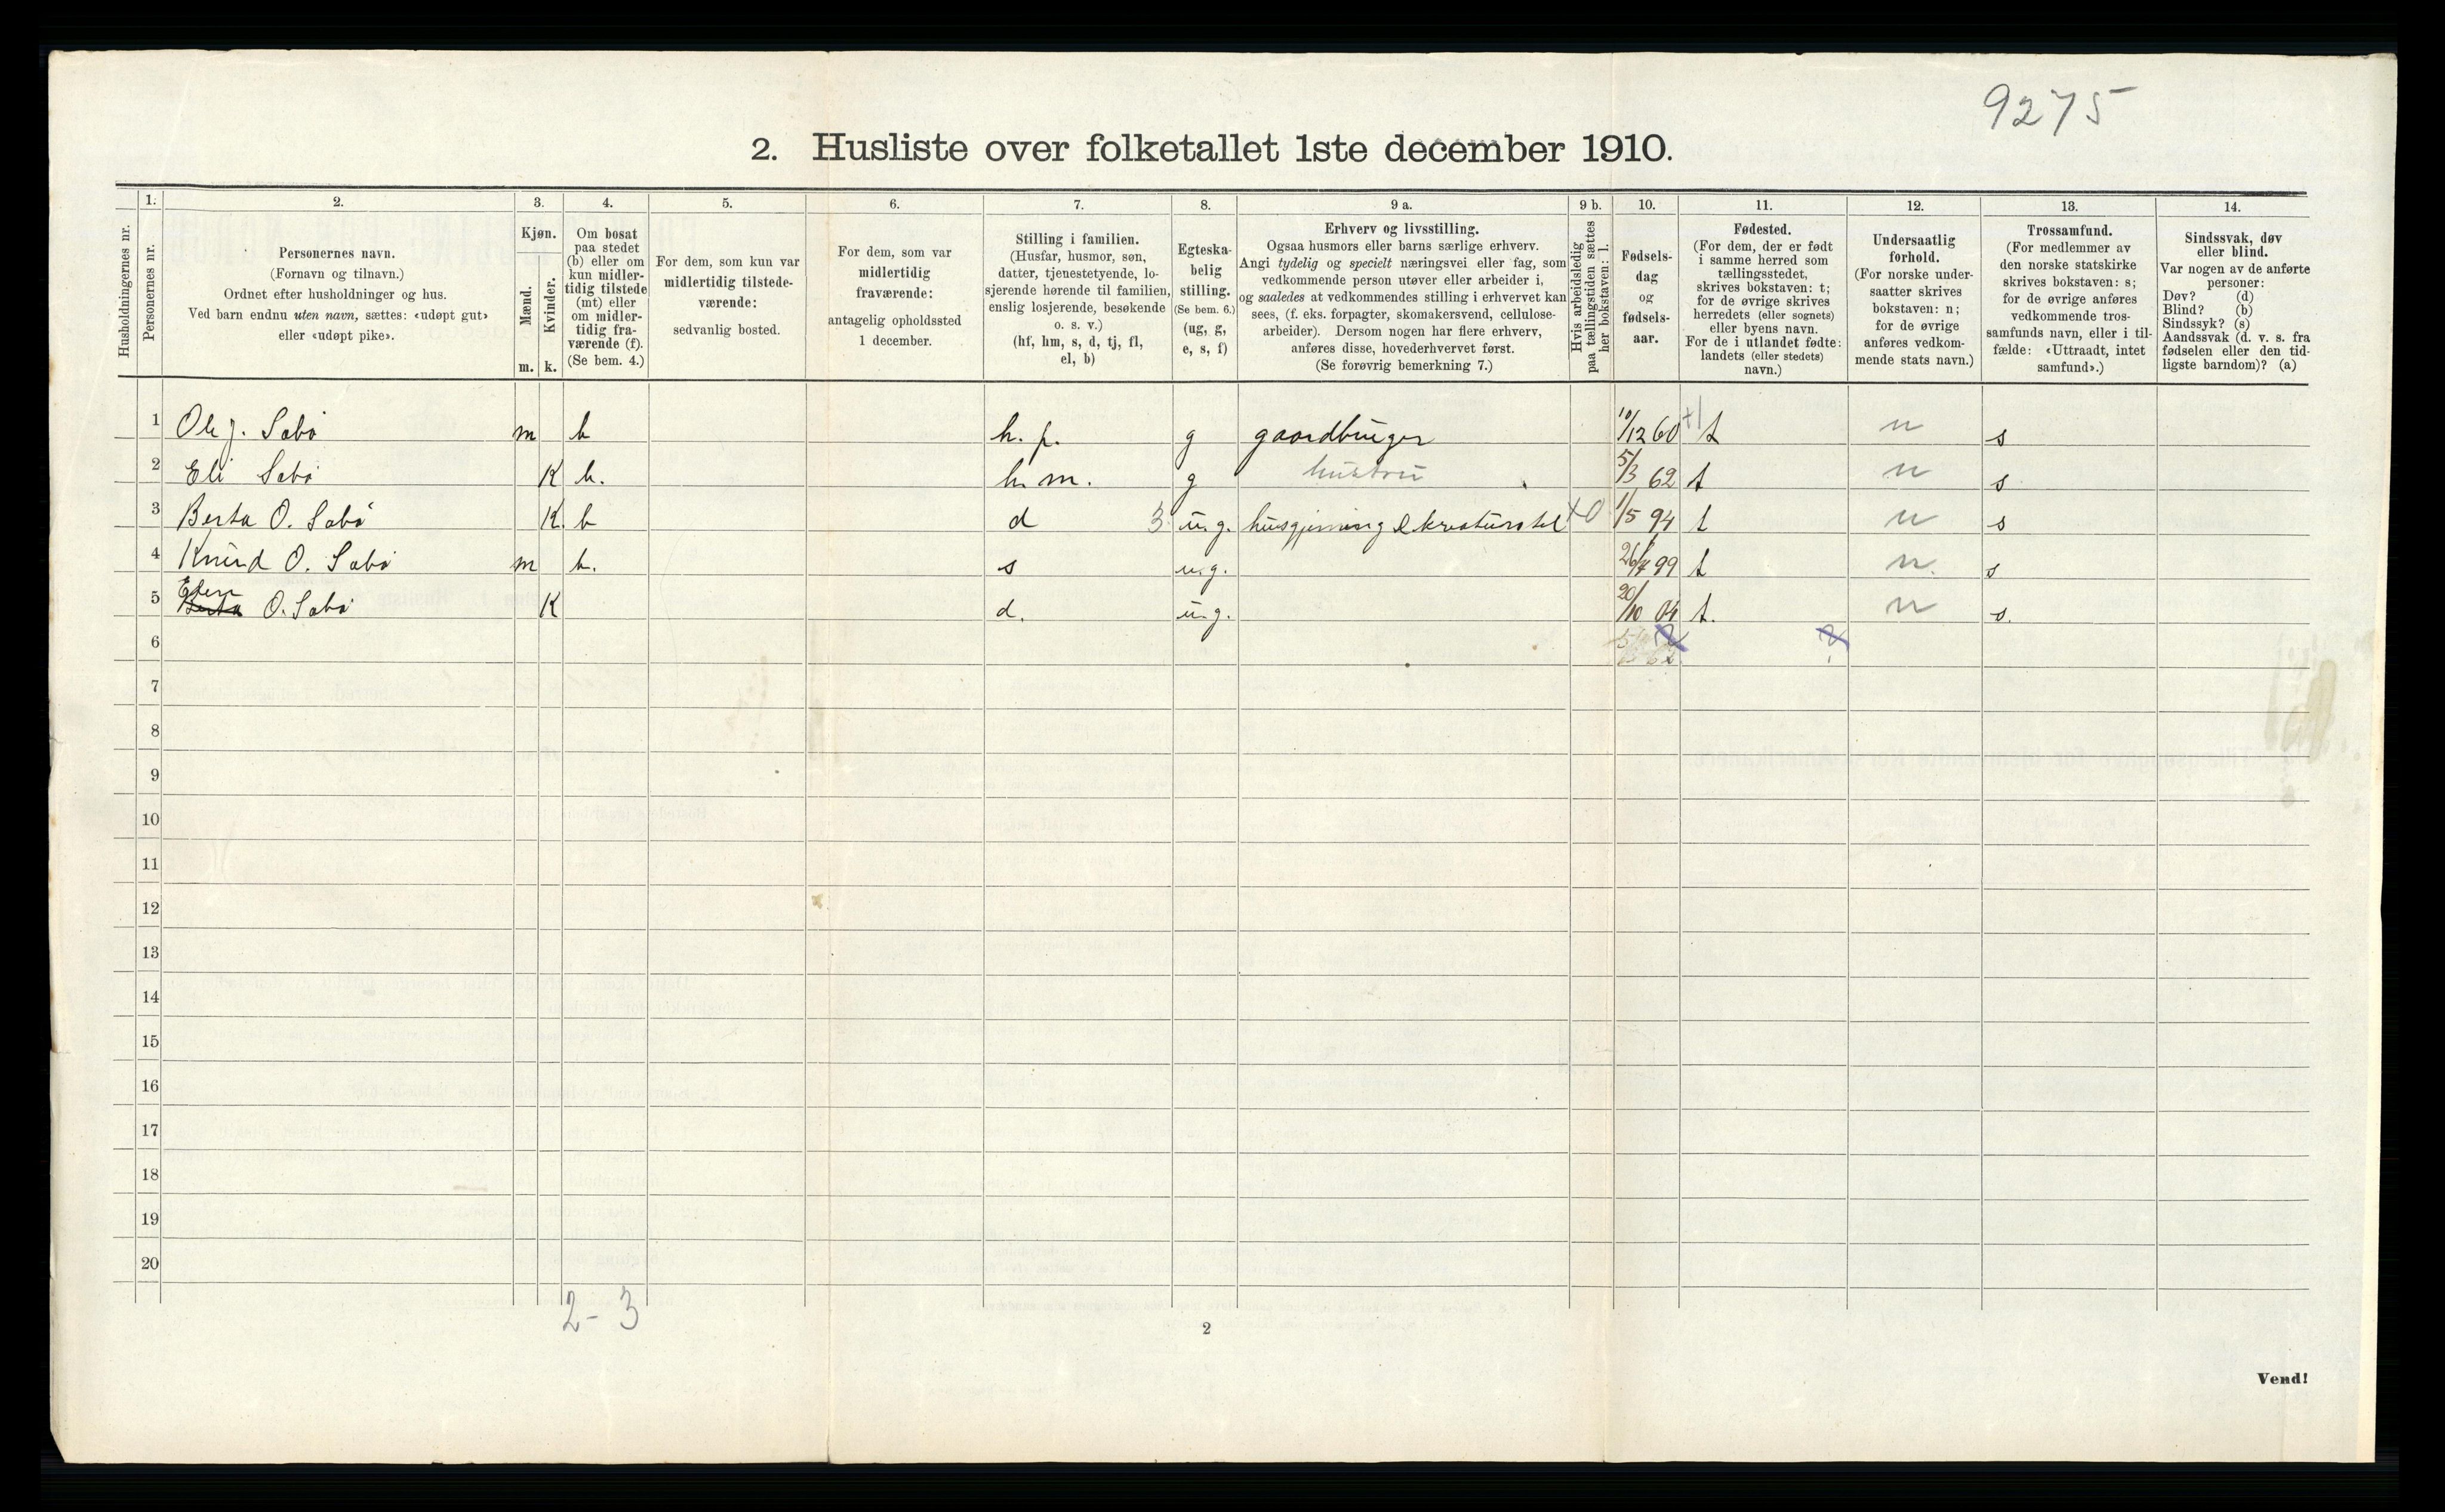 9275
2. Husliste over folketallet 1ste december 1910.
Husholdningernes nr.
1.
Personernes nr.
2.
Personernes navn.
(Fornavn og tilnavn.)
Ordnet efter husholdninger og hus.
Ved barn endnu uten navn, sættes: «udøpt gut»
eller «udøpt pike».
3.
Kjøn.
Mænd.
Kvinder.
m. k.
4.
Om bosat
paa stedet
(b) eller om
kun midler-
tidig tilstede
(mt) eller
om midler-
tidig fra-
værende (f).
(Se bem. 4.)
5.
For dem, som kun var
midlertidig tilstede-
værende:
sedvanlig bosted.
6.
For dem, som var
midlertidig
fraværende:
antagelig opholdssted
1 december.
7.
Stilling i familien.
(Husfar, husmor, søn,
datter, tjenestetyende, lo-
sjerende hørende til familien,
enslig losjerende, besøkende
o. s. v.)
(hf, hm, s, d, tj, fl,
el, b)
8.
Egteska-
belig
stilling.
(Se bem. 6.)
(ug, g,
e, s, f)
9 a.
Erhverv og livsstilling.
Ogsaa husmors eller barns særlige erhverv.
Angi tydelig og specielt næringsvei eller fag, som
vedkommende person utøver eller arbeider i,
og saaledes at vedkommendes stilling i erhvervet kan
sees, (f. eks. forpagter, skomakersvend, cellulose-
arbeider). Dersom nogen har flere erhverv,
anføres disse, hovederhvervet først.
(Se forøvrig bemerkning 7.)
9 b.
Hvis arbeidsledig
paa tællingstiden sættes
her bokstaven: l.
10.
Fødsels-
dag
og
fødsels-
aar.
11.
Fødested.
(For dem, der er født
i samme herred som
tællingsstedet,
skrives bokstaven: t;
for de øvrige skrives
herredets (eller sognets)
eller byens navn.
For de i utlandet fødte:
landets (eller stedets)
navn.)
12.
Undersaatlig
forhold.
(For norske under-
saatter skrives
bokstaven: n;
for de øvrige
anføres vedkom-
mende stats navn.)
13.
Trossamfund.
(For medlemmer av
den norske statskirke
skrives bokstaven: s;
for de øvrige anføres
vedkommende tros-
samfunds navn, eller i til-
fælde: «Uttraadt, intet
samfund».)
14.
Sindssvak, døv
eller blind.
Var nogen av de anførte
personer:
Døv? (d)
Blind? (b)
Sindssyk? (s)
Aandssvak (d. v. s. fra
fødselen eller den tid-
ligste barndom)? (a)
1 Ole J. Sabø m b h. f. g gaardbruger 10/12 60 t n s
2 Eli Sabø K b. h. m. g hustru 5/3 62 t n s
3 Berta O. Sabø K. b d 3 u.g. husgjerning & kreaturstel +0 1/5 94 t n s
4 Knud O. Sabø m b. s u.g. 99 t n. s
5 Berta O. Sabø K d. u.g. 20/10 04 t. n s.
6 ?
7
8
9
10
11
12
13
14
15
16
17
18
19
20
2-3
2
Vend!